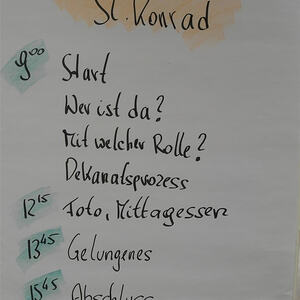 St. Konrad
9⁰⁰ Start
Wer ist da?
Mit welcher Rolle?
Dekanatsprozess
12¹⁵ Foto, Mittagessen
13⁴⁵ Gelungenes
15⁴⁵ Abschluss